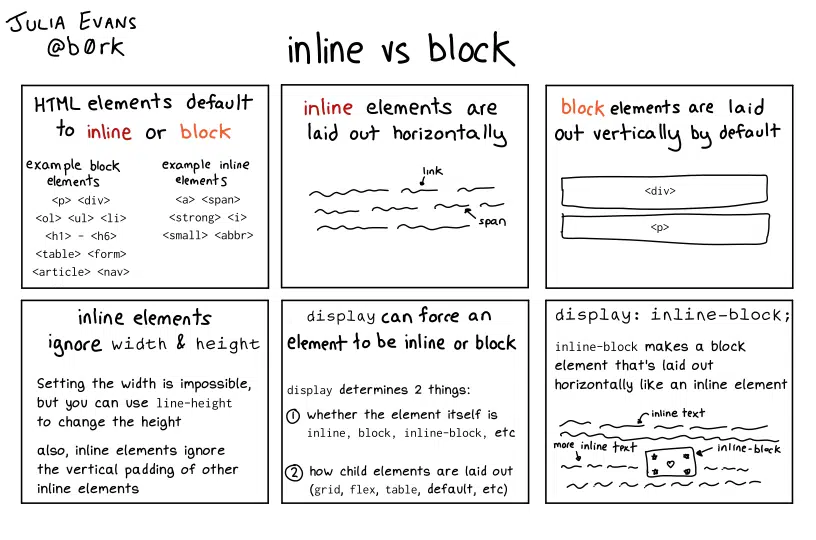 JULIA EVANS
@b0rk
inline vs block
HTML elements default
to inline or block
example block
elements
<p> <div>
<ol> <ul> <li>
<h1> - <h6>
<table> <form>
<article> <nav>
example inline
elements
<a> <span>
<strong> <i>
<small> <abbr>
inline elements are
laid out horizontally
link
span
block elements are laid
out vertically by default
<div>
<p>
inline elements
ignore width & height
Setting the width is impossible,
but you can use line-height
to change the height
also, inline elements ignore
the vertical padding of other
inline elements
display can force an
element to be inline or block
display determines 2 things:
① whether the element itself is
inline, block, inline-block, etc
② how child elements are laid out
(grid, flex, table, default, etc)
display: inline-block;
inline-block makes a block
element that's laid out
horizontally like an inline element
inline text
more inline text
inline-block